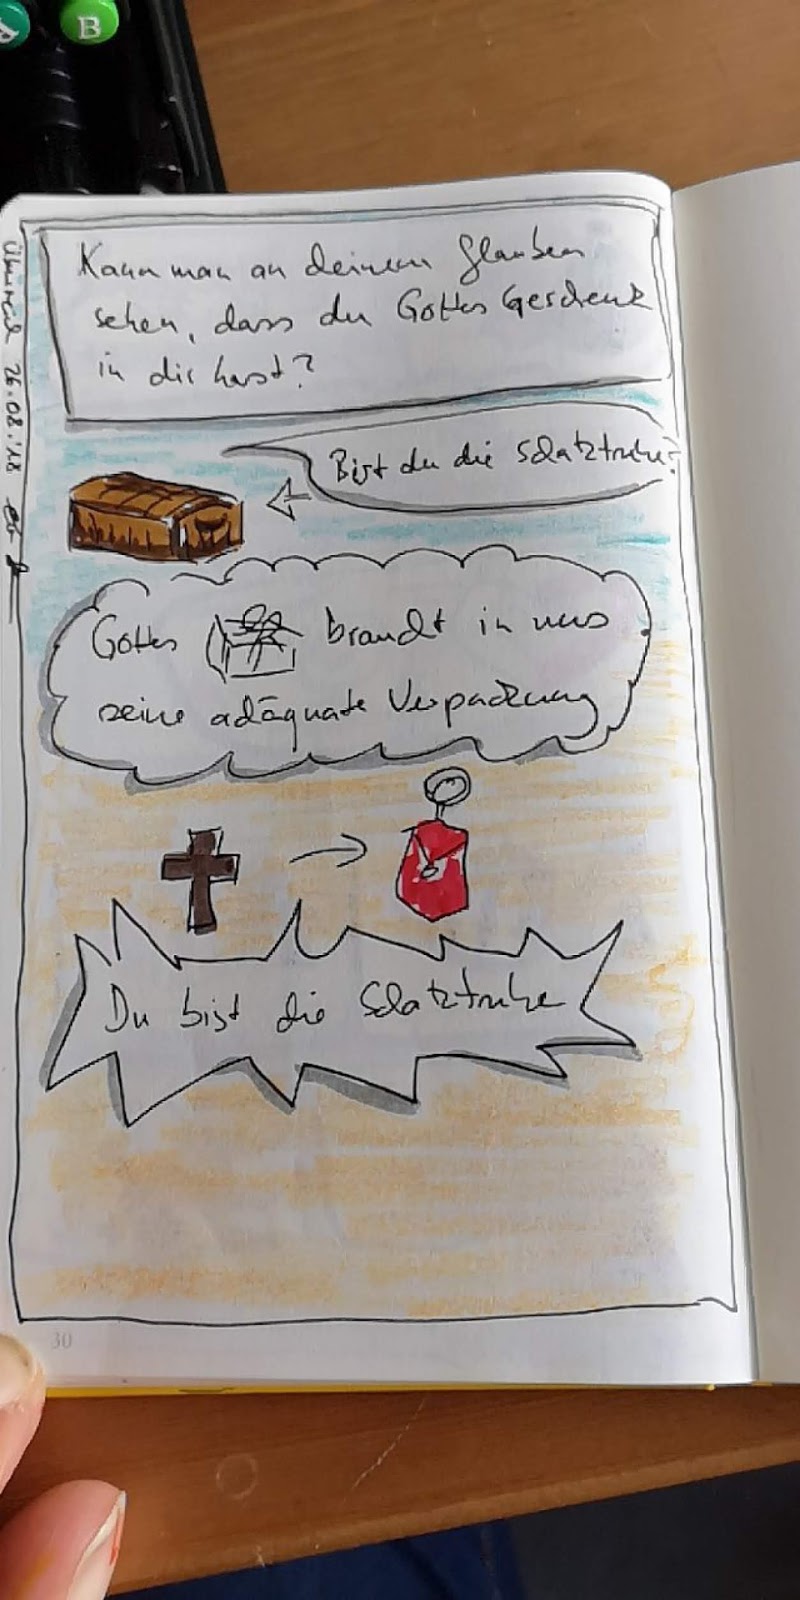 Kann man an deinem Glauben
sehen, dass du Gottes Geschenk
in dir hast?
Bist du die Schatztruhe?
Gottes braucht in uns
seine adäquate Verpackung
Du bist die Schatztruhe
26.08.'18
30
B